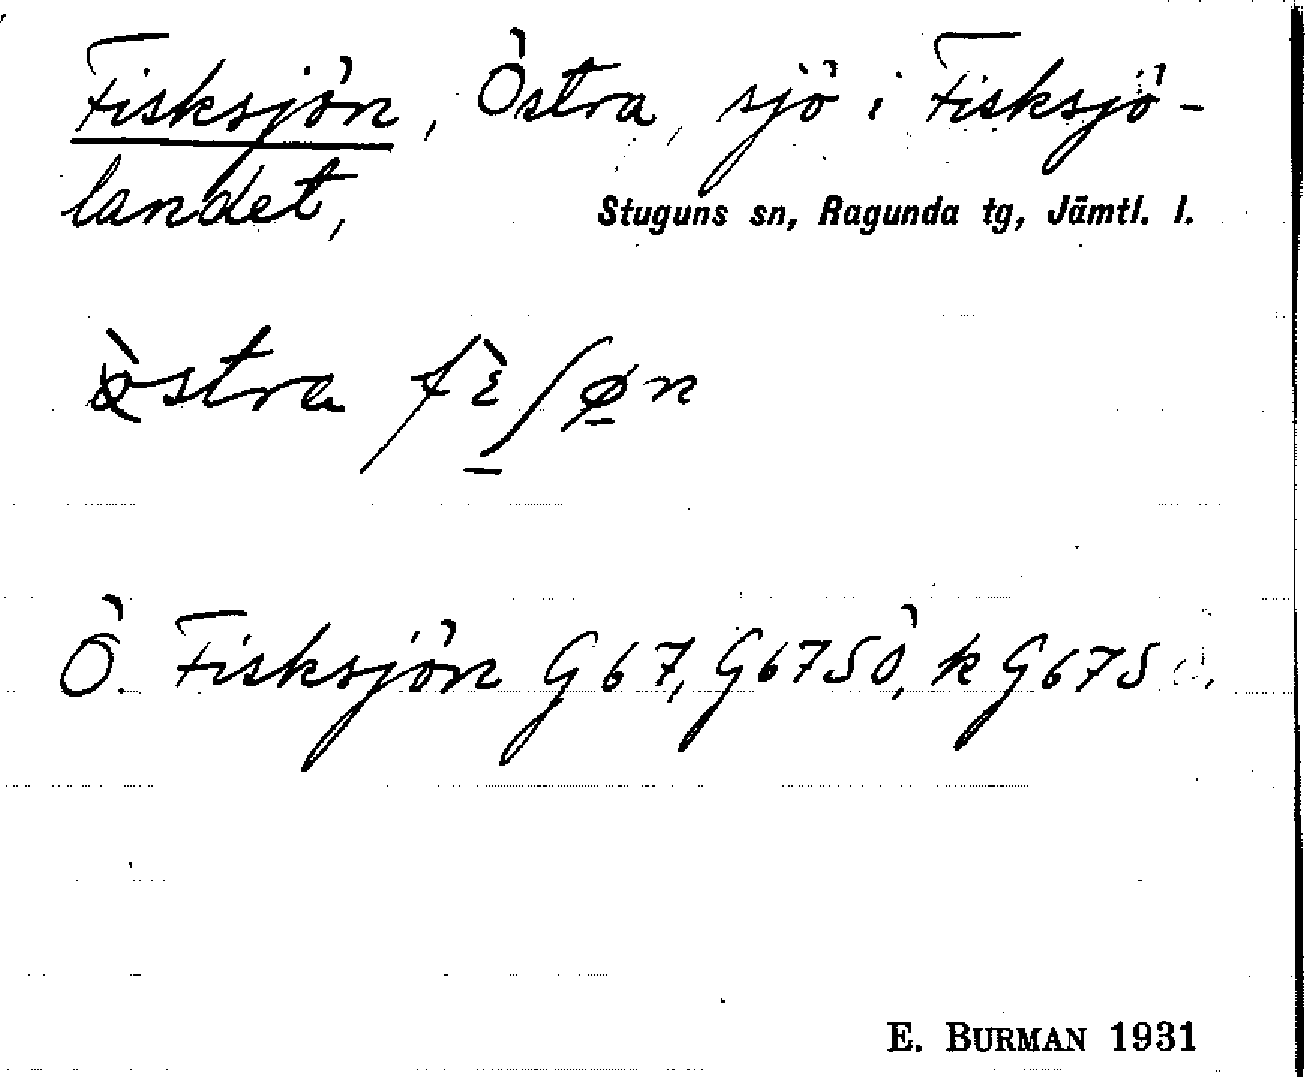 Fisksjön, Östra, sjö i Fisksjö-
landet,
Stuguns sn, Ragunda tg, Jämtl. l.
östra fɛ̀ʃøn
Ö. Fisksjön G67, G67SÖ, kG67S
E. BURMAN 1931